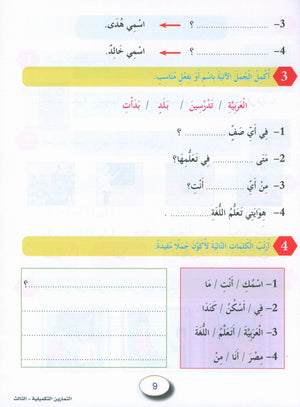 3- ........................ ؟ ← اسْمِي هُدَى.
4- ........................ ؟ ← اسْمِي خَالِدٌ.
3 أُكْمِلُ الْجُمَلَ الْآتِيَةَ بِاسْمٍ أَوْ بِفِعْلٍ مُنَاسِبٍ:
الْعَرَبِيَّةِ / تَدْرُسِينَ / بَلَدٍ / بَدَأْتِ
1- فِي أَيِّ صَفٍّ ........................ ؟
2- مَتَى ........................ فِي تَعَلُّمِهَا؟
3- مِنْ أَيِّ ........................ أَنْتِ؟
4- هِوَايَتِي تَعَلُّمُ اللُّغَةِ ........................ .
4 أُرَتِّبُ الْكَلِمَاتِ التَّالِيَةَ لِأُكَوِّنَ جُمَلًا مُفِيدَةً:
1- اسْمُكِ / أَنْتِ / مَا
........................ ؟
2- فِي / أَسْكُنُ / كَنَدَا
........................ .
3- الْعَرَبِيَّةَ / أَتَعَلَّمُ / اللُّغَةَ
........................ .
4- مِصْرَ / أَنَا / مِنْ
........................ .
9
التمارين التكميلية - الثالث